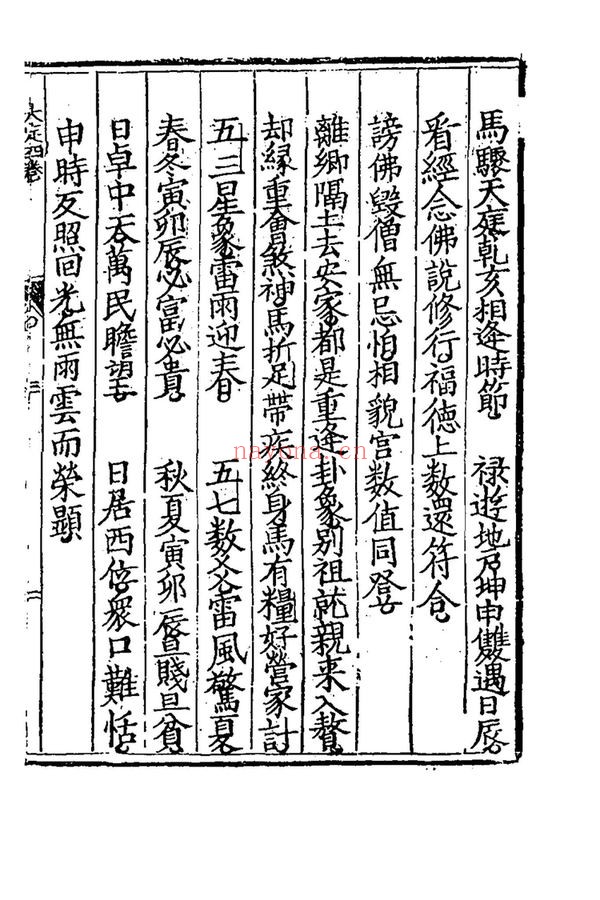 馬驟天庭乾亥相逢時節 祿逰地乃坤申雙遇日辰
看經念佛說修行福德上数還符合
謗佛毀僧無忌怕相貌宮数值同登
離鄉隔土去安家都是重逢卦象別祖就親来入贅
却緣重會煞神馬折足帶疾終身馬有糧好營家計
五三星象雷雨迎春 五七数爻雷風驚夏
春冬寅卯辰必富必貴 秋夏寅卯辰且賤且貧
日卓中天萬民瞻望 日居西位衆口難恬
申時反照回光無雨雲而榮顯
大定四卷
nayona.cn